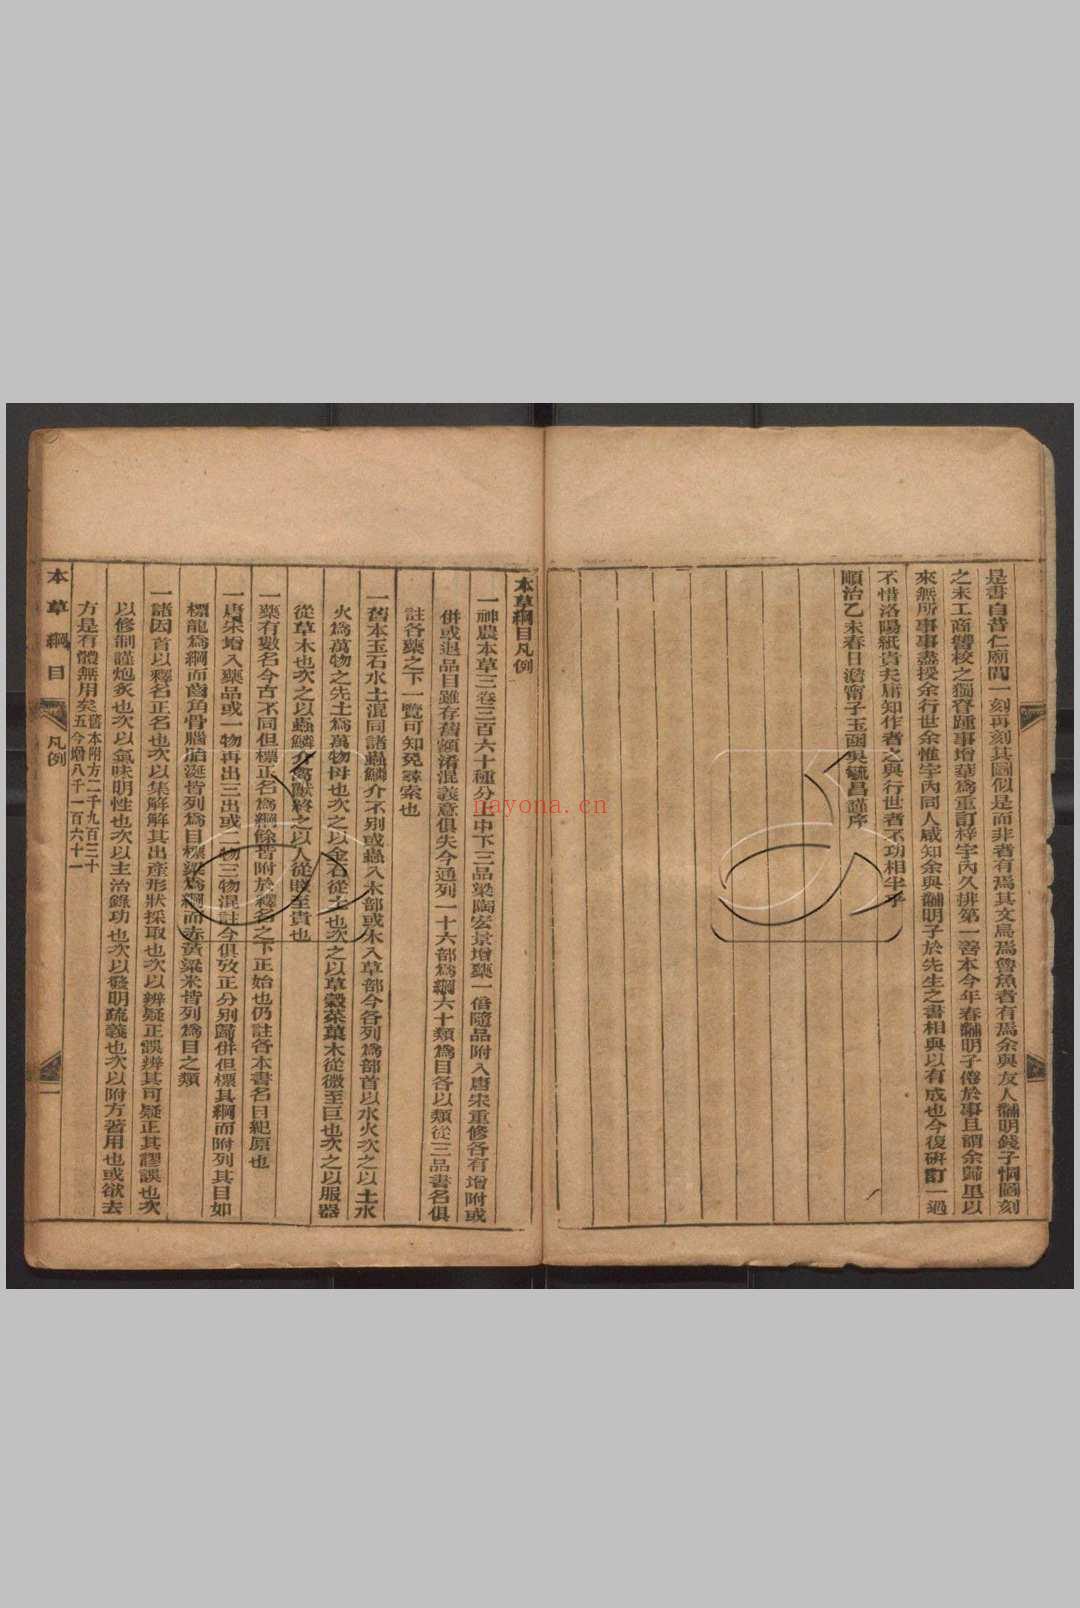 是書自昔仁廟間一刻再刻其圖似是而非者有焉其文烏焉魯魚者有焉余與友人黼明錢子惘圖刻
之未工商讐校之獨眘踵事增華爲重訂梓宇內久排第一善本今年春黼明子倦於事且謂余歸里以
來無所事事盡授余行世余惟宇內同人咸知余與黼明子於先生之書相與以有成也今復硏訂一過
不惜洛陽紙貴夫庸知作者之與行世者不功相半乎
順治乙未春日澹甯子玉函吳毓昌謹序
本草綱目凡例
一神農本草三卷三百六十種分上中下三品梁陶宏景增藥一倍隨品附入唐宋重修各有增附或
併或退品目雖存舊額淆混義意俱失今通列一十六部爲綱六十類爲目各以類從三品書名俱
註各藥之下一覽可知免尋索也
一舊本玉石水土混同諸蟲鱗介不别或蟲入木部或木入草部今各列爲部首以水火次之以土水
火爲萬物之先土爲萬物母也次之以金石從土也次之以草穀菜菓木從微至巨也次之以服器
從草木也次之以蟲鱗介禽獸終之以人從賤至貴也
一藥有數名今古不同但標正名爲綱餘皆附於釋名之下正始也仍註各本書名目紀原也
一唐宋增入藥品或一物再出三出或二物三物混註今俱攷正分别歸併但標其綱而附列其目如
標龍爲綱而齒角骨腦胎涎皆列爲目標粱爲綱而赤黃粱米皆列爲目之類
一諸因首以釋名正名也次以集解解其出產形狀採取也次以辨疑正誤辨其可疑正其謬誤也次
以修制謹炮炙也次以氣味明性也次以主治錄功也次以發明疏義也次以附方著用也或欲去
方是有體無用矣舊本附方二千九百三十
五今增八千一百六十一
本草綱目
凡例
一
nayona.cn